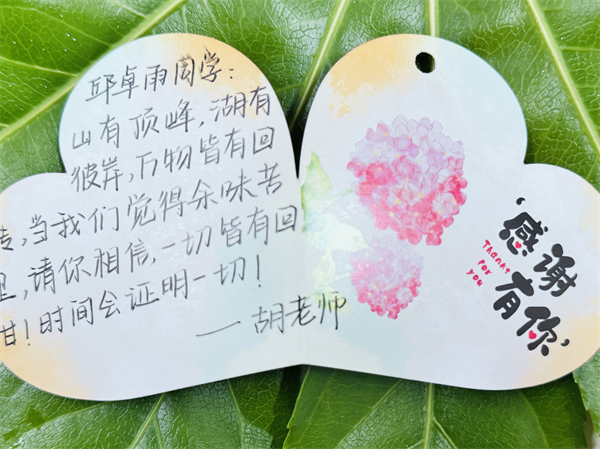 邱卓雨同学:
山有顶峰,湖有
彼岸,万物皆有回
转,当我们觉得余味苦
,请你相信,一切皆有回
甘!时间会证明一切!
—胡老师
‘感谢
有你’
Thanks
for
you